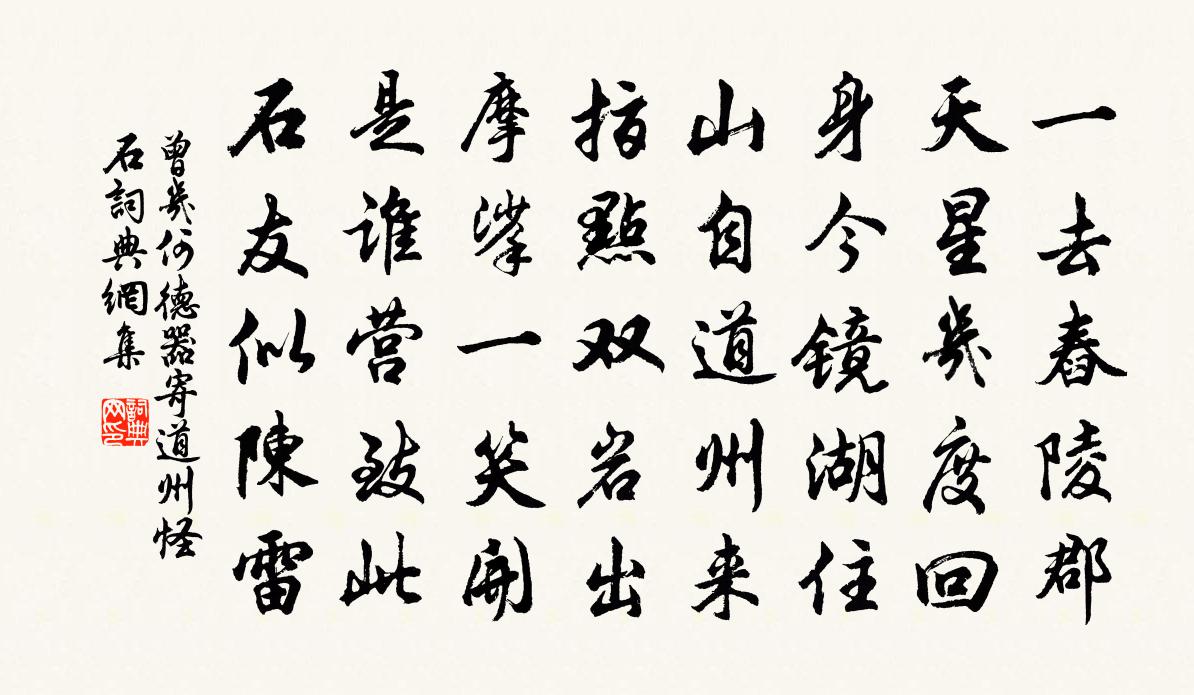 一去舂陵郡
天星幾度回
身今镜湖住
山自道州来
指點双岩出
摩挲一笑開
是谁营致此
石友似陳雷
曾幾何德器寄道州怪
石詞典網集
詞典
网印